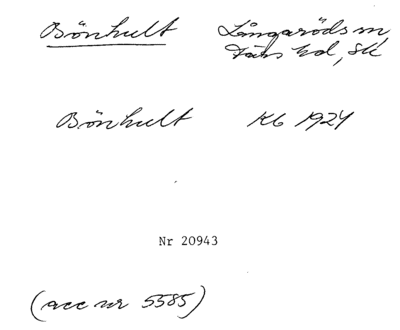 Bönhult Långaröds sn,
Färs hd, Sk
Bönhult Kb 1924
Nr 20943
(acc nr 5585)